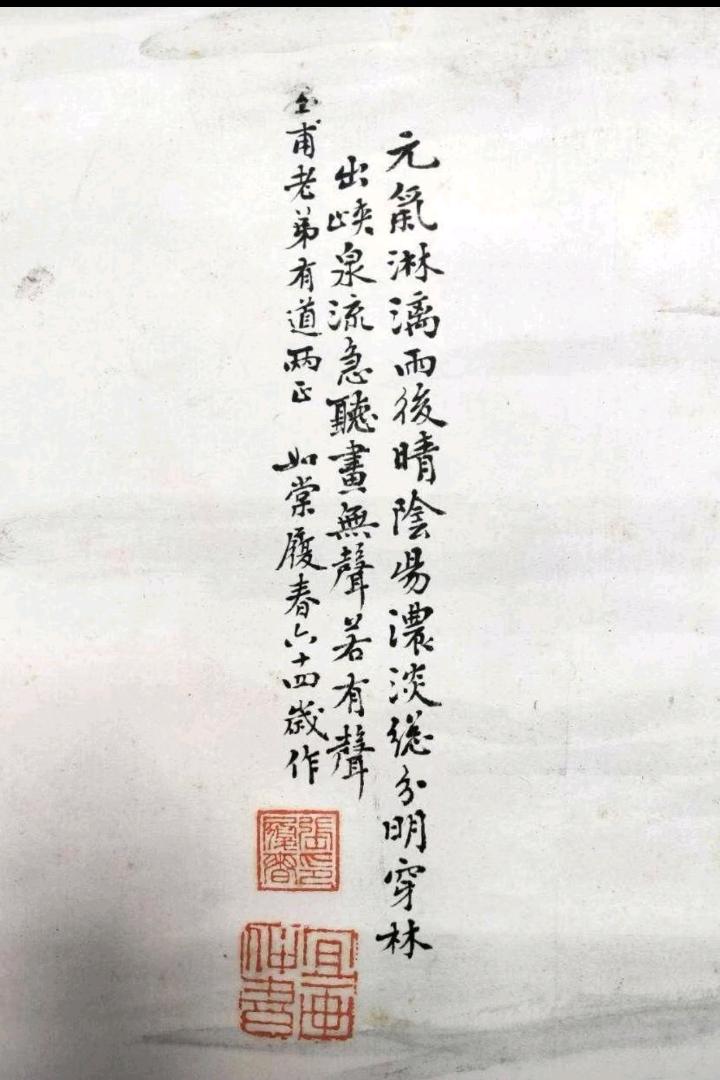 元氣淋漓雨後晴陰陽濃淡總分明穿林
出峽泉流急聽畫無聲若有聲
甫老弟有道兩正 如棠履春六十四歲作
張印履春
宜畫